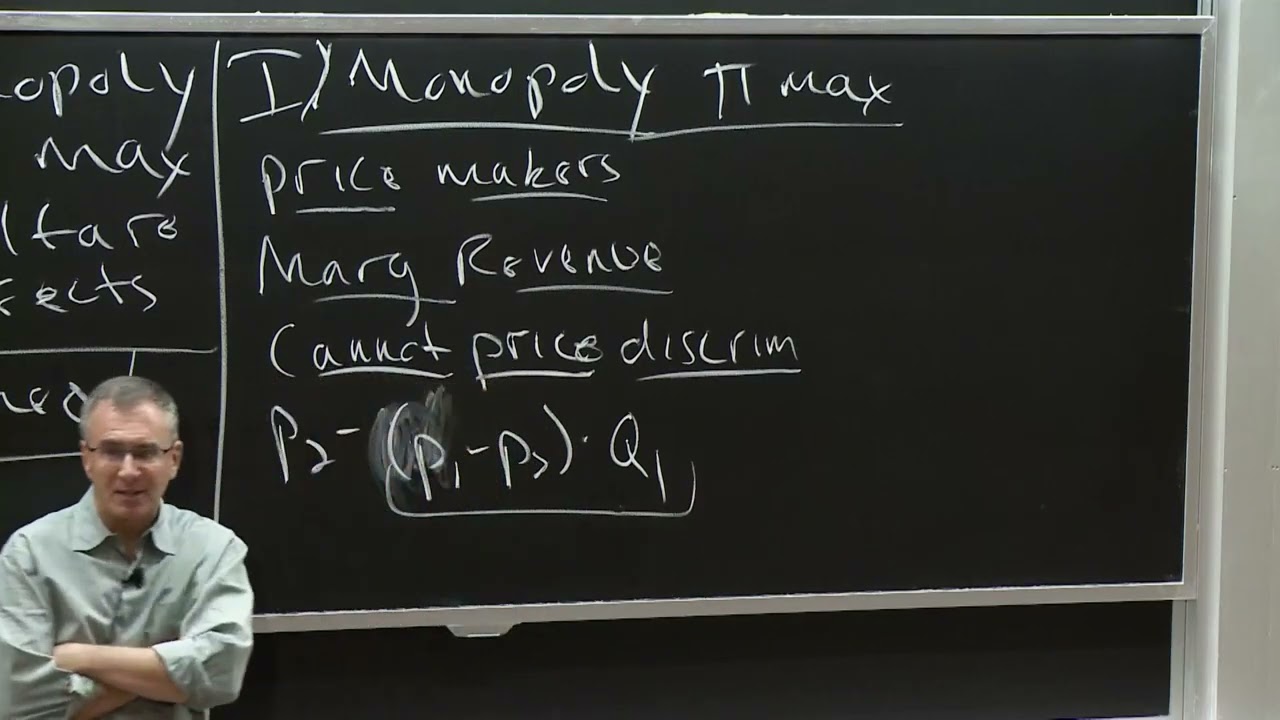 opoly
max
lfare
ects
I) Monopoly π max
price makers
Marg Revenue
Cannot price discrim
P₂ - (P₁ - P₂) · Q₁